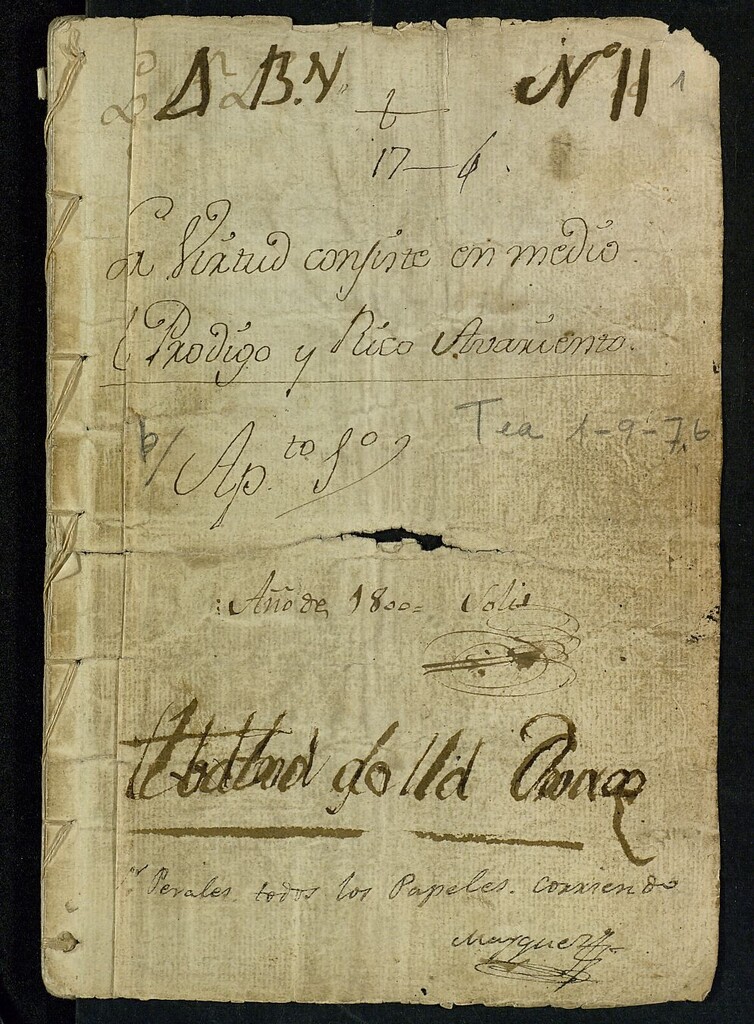 B.N. Nº 11 1
17-6.
La Virtud consiste en medio.
El Prodigo y Rico Avariento.
Tea 1-9-7,b
Ap.to 1º
Año de 1800= Solis
Perales todos los Papeles. corriendo
Marquez